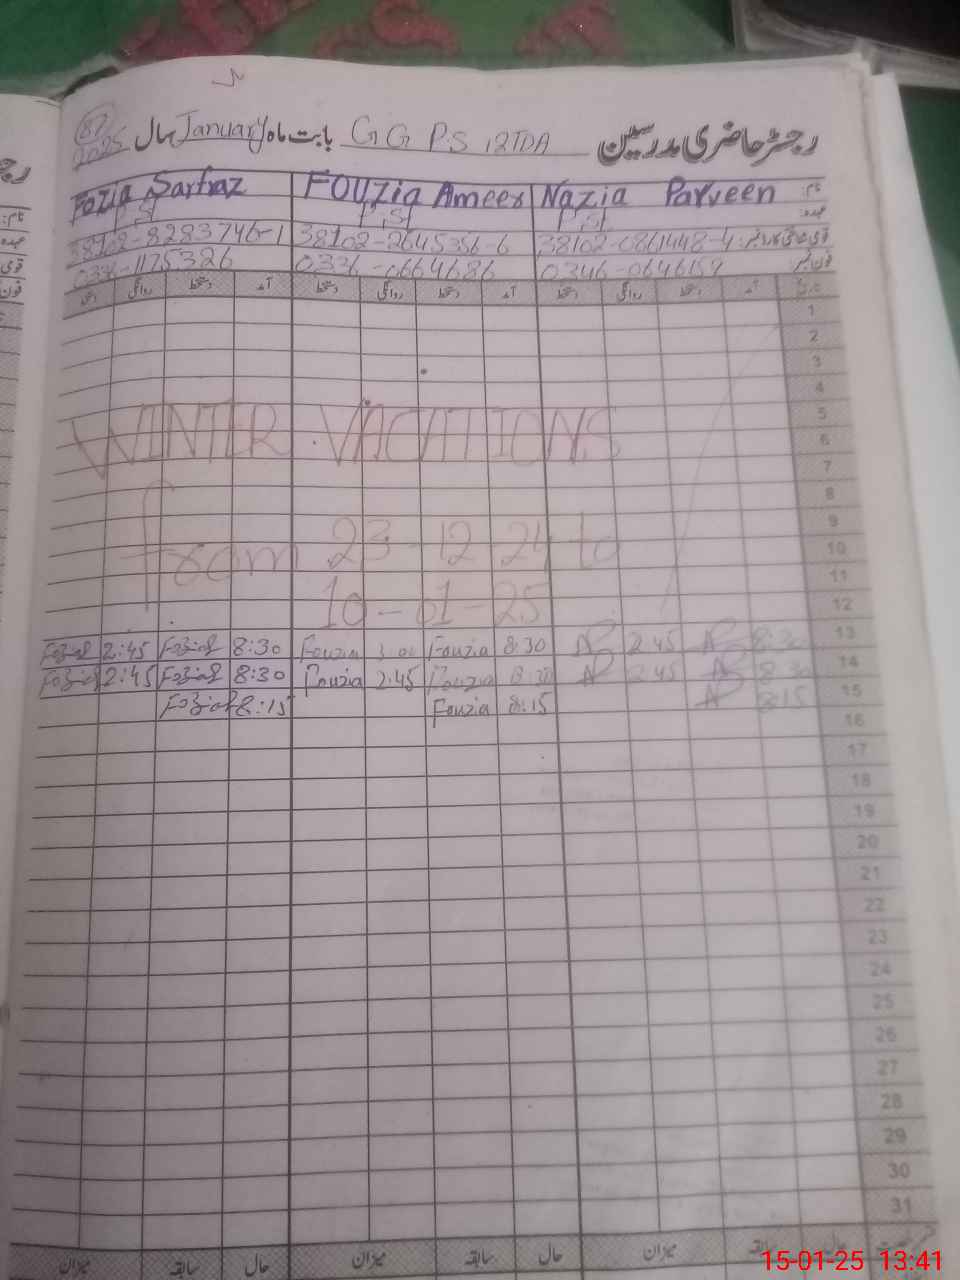 87
رجسٹر حاضری مدرسین G G P.S 12TDA بابت ماہ January سال 2025
نام: Nazia Parveen FOUZia Ameer Fozia Sarfraz
عہدہ: PST PST PST
قومی شناختی کارڈ نمبر: 38102-0861448-4 38102-2645356-6 38102-8283746-1
فون نمبر: 0346-0646159 0336-0664686 0336-1175326
تاریخ آمد دستخط روانگی دستخط آمد دستخط روانگی دستخط آمد دستخط روانگی دستخط
1
2
3
4
5
WINTER VACATIONS
6
7
8
9
from 23-12-24 to
10
11
10-01-25
12
13 8:30 2:45 8:30 Fouzia Fouzia 8:30 Fozia 2:45 Fozia
14 8:30 2:45 8:30 Fouzia 2:45 Fouzia 8:30 Fozia 2:45 Fozia
15 8:15 8:15 Fouzia 8:15 Fozia
16
17
18
19
20
21
22
23
24
25
26
27
28
29
30
31
حال سابقہ میزان حال سابقہ میزان حال سابقہ میزان
15-01-25 13:41